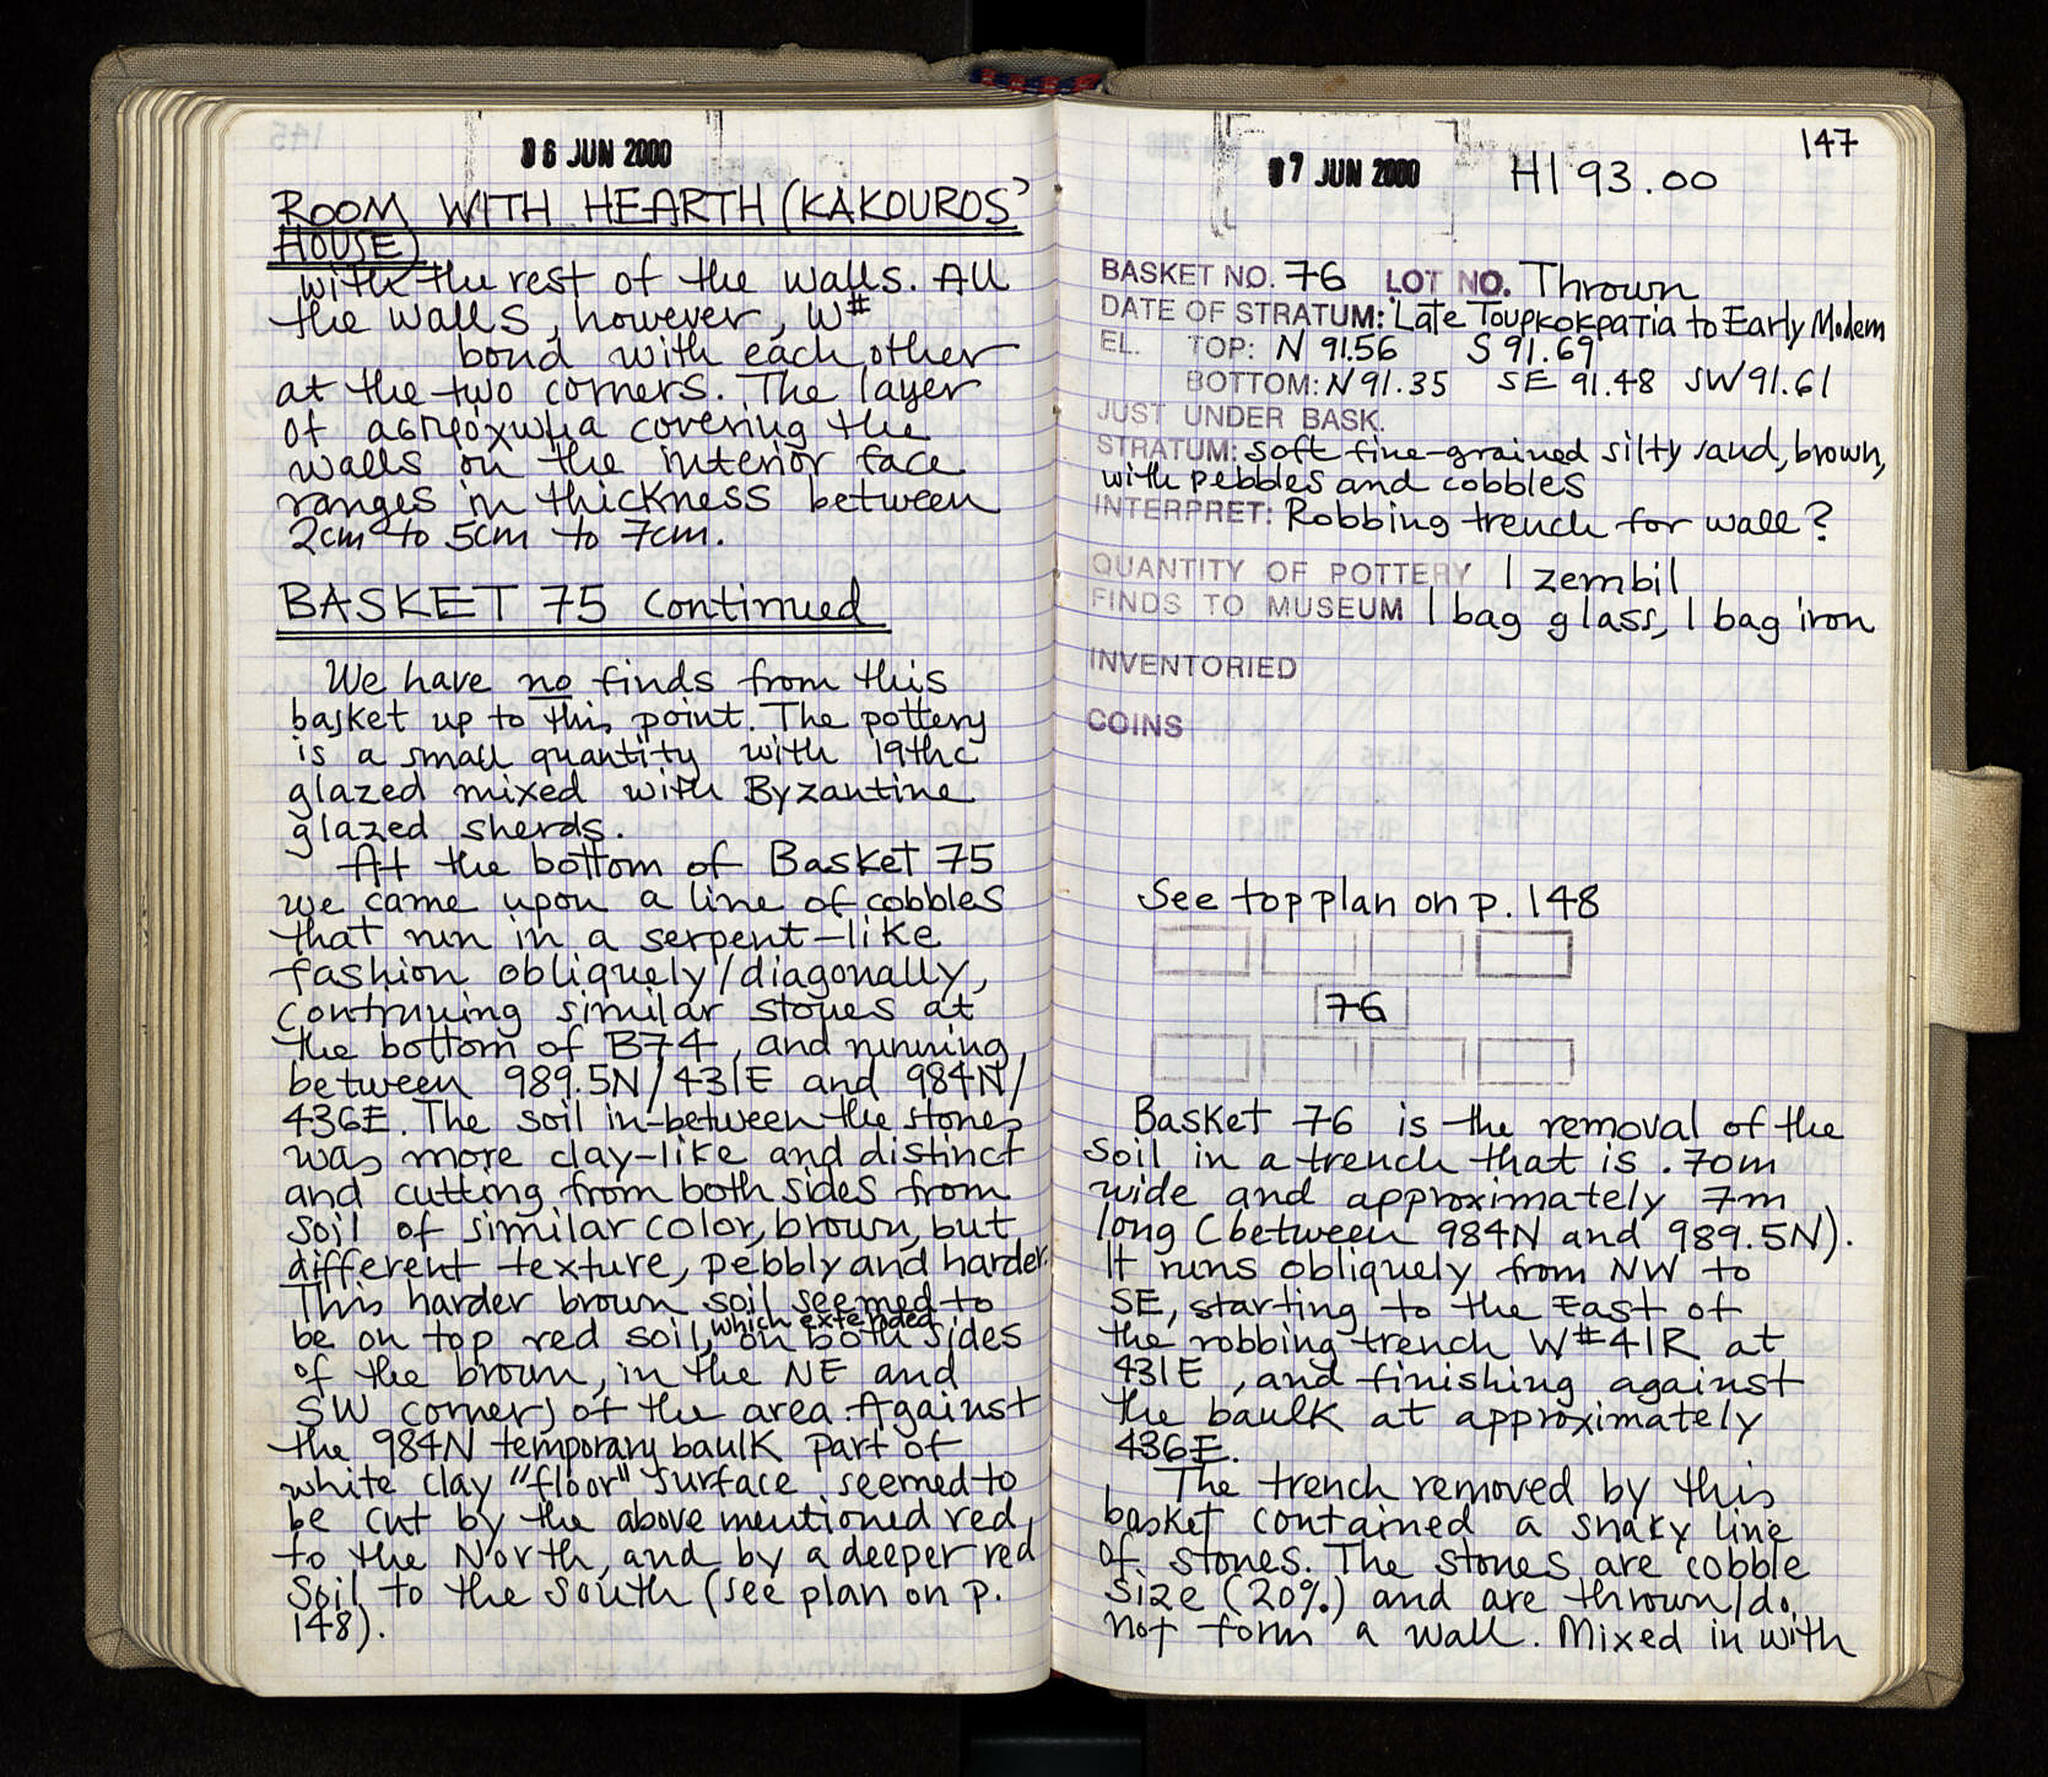 06 JUN 2000
ROOM WITH HEARTH (KAKOUROS'
HOUSE)
with the rest of the walls. All
the walls, however, W#
bond with each other
at the two corners. The layer
of ασπρόχωμα covering the
walls on the interior face
ranges in thickness between
2cm to 5cm to 7cm.
BASKET 75 continued
We have no finds from this
basket up to this point. The pottery
is a small quantity with 19thc
glazed mixed with Byzantine
glazed sherds.
At the bottom of Basket 75
we came upon a line of cobbles
that run in a serpent-like
fashion obliquely/diagonally,
continuing similar stones at
the bottom of B74, and running
between 989.5N/431E and 984N/
436E. The soil in-between the stones
was more clay-like and distinct
and cutting from both sides from
soil of similar color, brown, but
different texture, pebbly and harder.
This harder brown soil seemed to
be on top red soil, which extended on both sides
of the brown, in the NE and
SW corners of the area. Against
the 984N temporary baulk part of
white clay "floor" surface seemed to
be cut by the above mentioned red,
to the North, and by a deeper red
soil to the south (see plan on p.
148).
147
07 JUN 2000 HI 93.00
BASKET NO. 76 LOT NO. Thrown
DATE OF STRATUM: Late Τουρκοκρατία to Early Modern
EL. TOP: N 91.56 S 91.69
BOTTOM: N 91.35 SE 91.48 SW 91.61
JUST UNDER BASK.
STRATUM: soft fine-grained silty sand, brown,
with pebbles and cobbles
INTERPRET: Robbing trench for wall?
QUANTITY OF POTTERY 1 zembil
FINDS TO MUSEUM 1 bag glass, 1 bag iron
INVENTORIED
COINS
See top plan on p. 148
76
Basket 76 is the removal of the
soil in a trench that is .70m
wide and approximately 7m
long (between 984N and 989.5N).
It runs obliquely from NW to
SE, starting to the East of
the robbing trench W#41R at
431E, and finishing against
the baulk at approximately
436E.
The trench removed by this
basket contained a snaky line
of stones. The stones are cobble
size (20%) and are thrown/do
not form a wall. Mixed in with